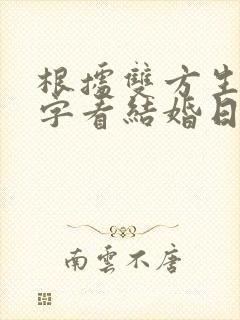 根據雙方生
字看結婚日
南雲不唐